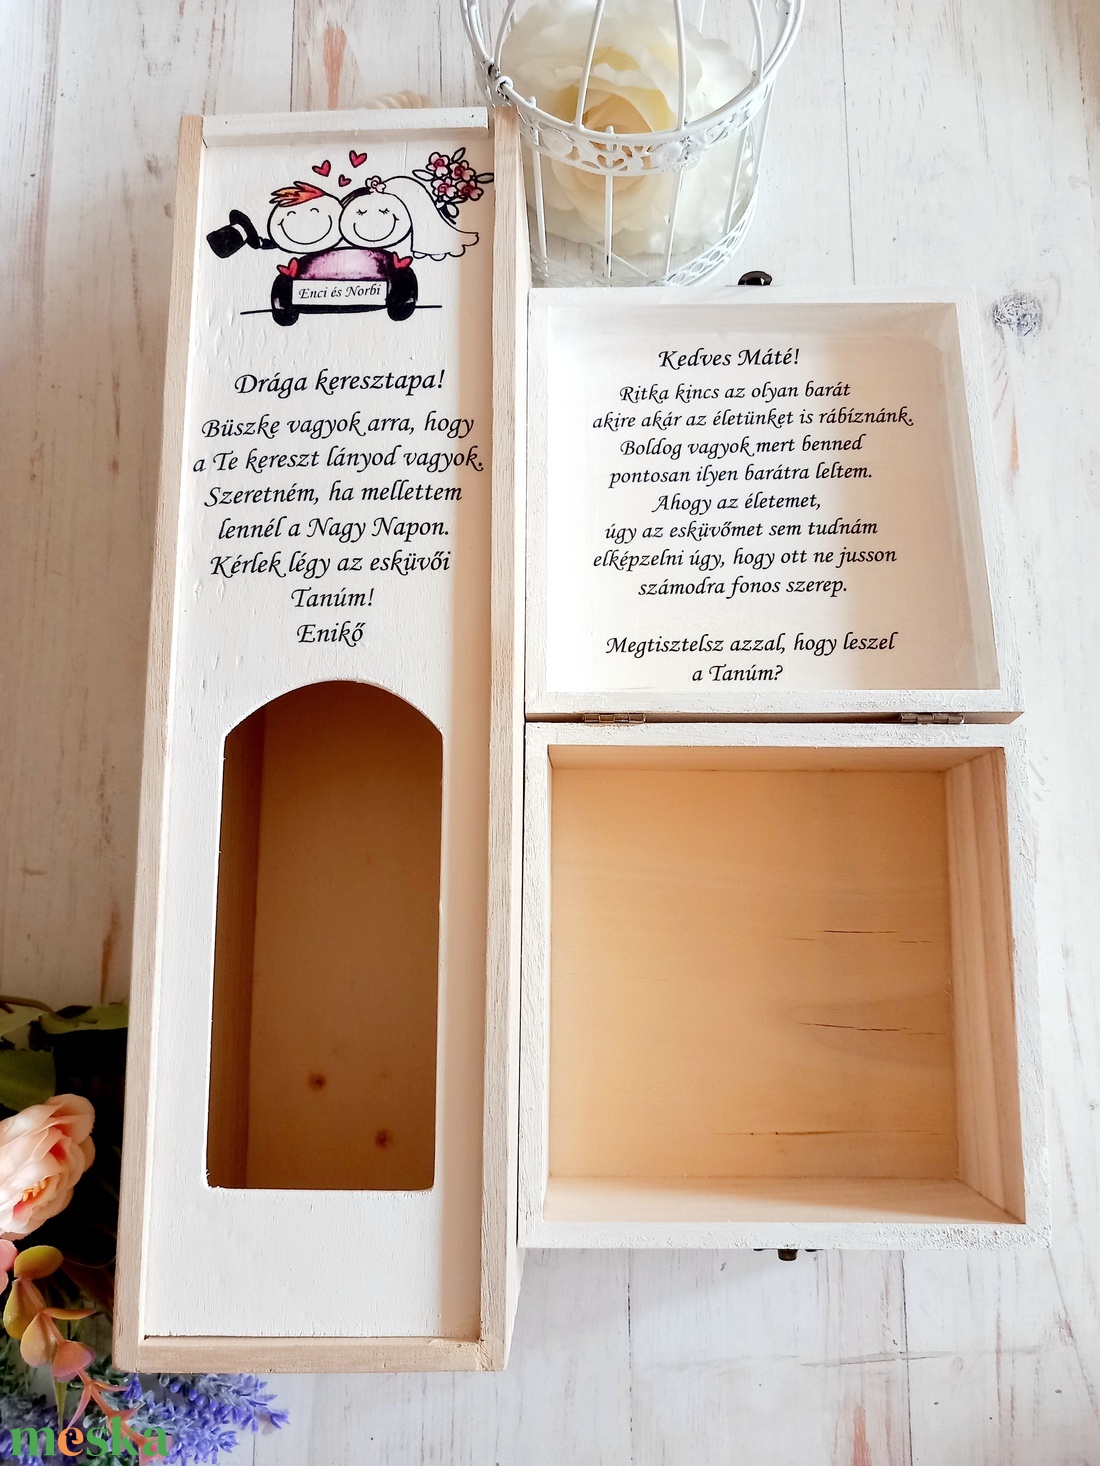 Enci és Norbi
Drága keresztapa!
Büszke vagyok arra, hogy
a Te kereszt lányod vagyok.
Szeretném, ha mellettem
lennél a Nagy Napon.
Kérlek légy az esküvői
Tanúm!
Enikő
Kedves Máté!
Ritka kincs az olyan barát
akire akár az életünket is rábíznánk.
Boldog vagyok mert benned
pontosan ilyen barátra leltem.
Ahogy az életemet,
úgy az esküvőmet sem tudnám
elképzelni úgy, hogy ott ne jusson
számodra fonos szerep.
Megtisztelsz azzal, hogy leszel
a Tanúm?
meska